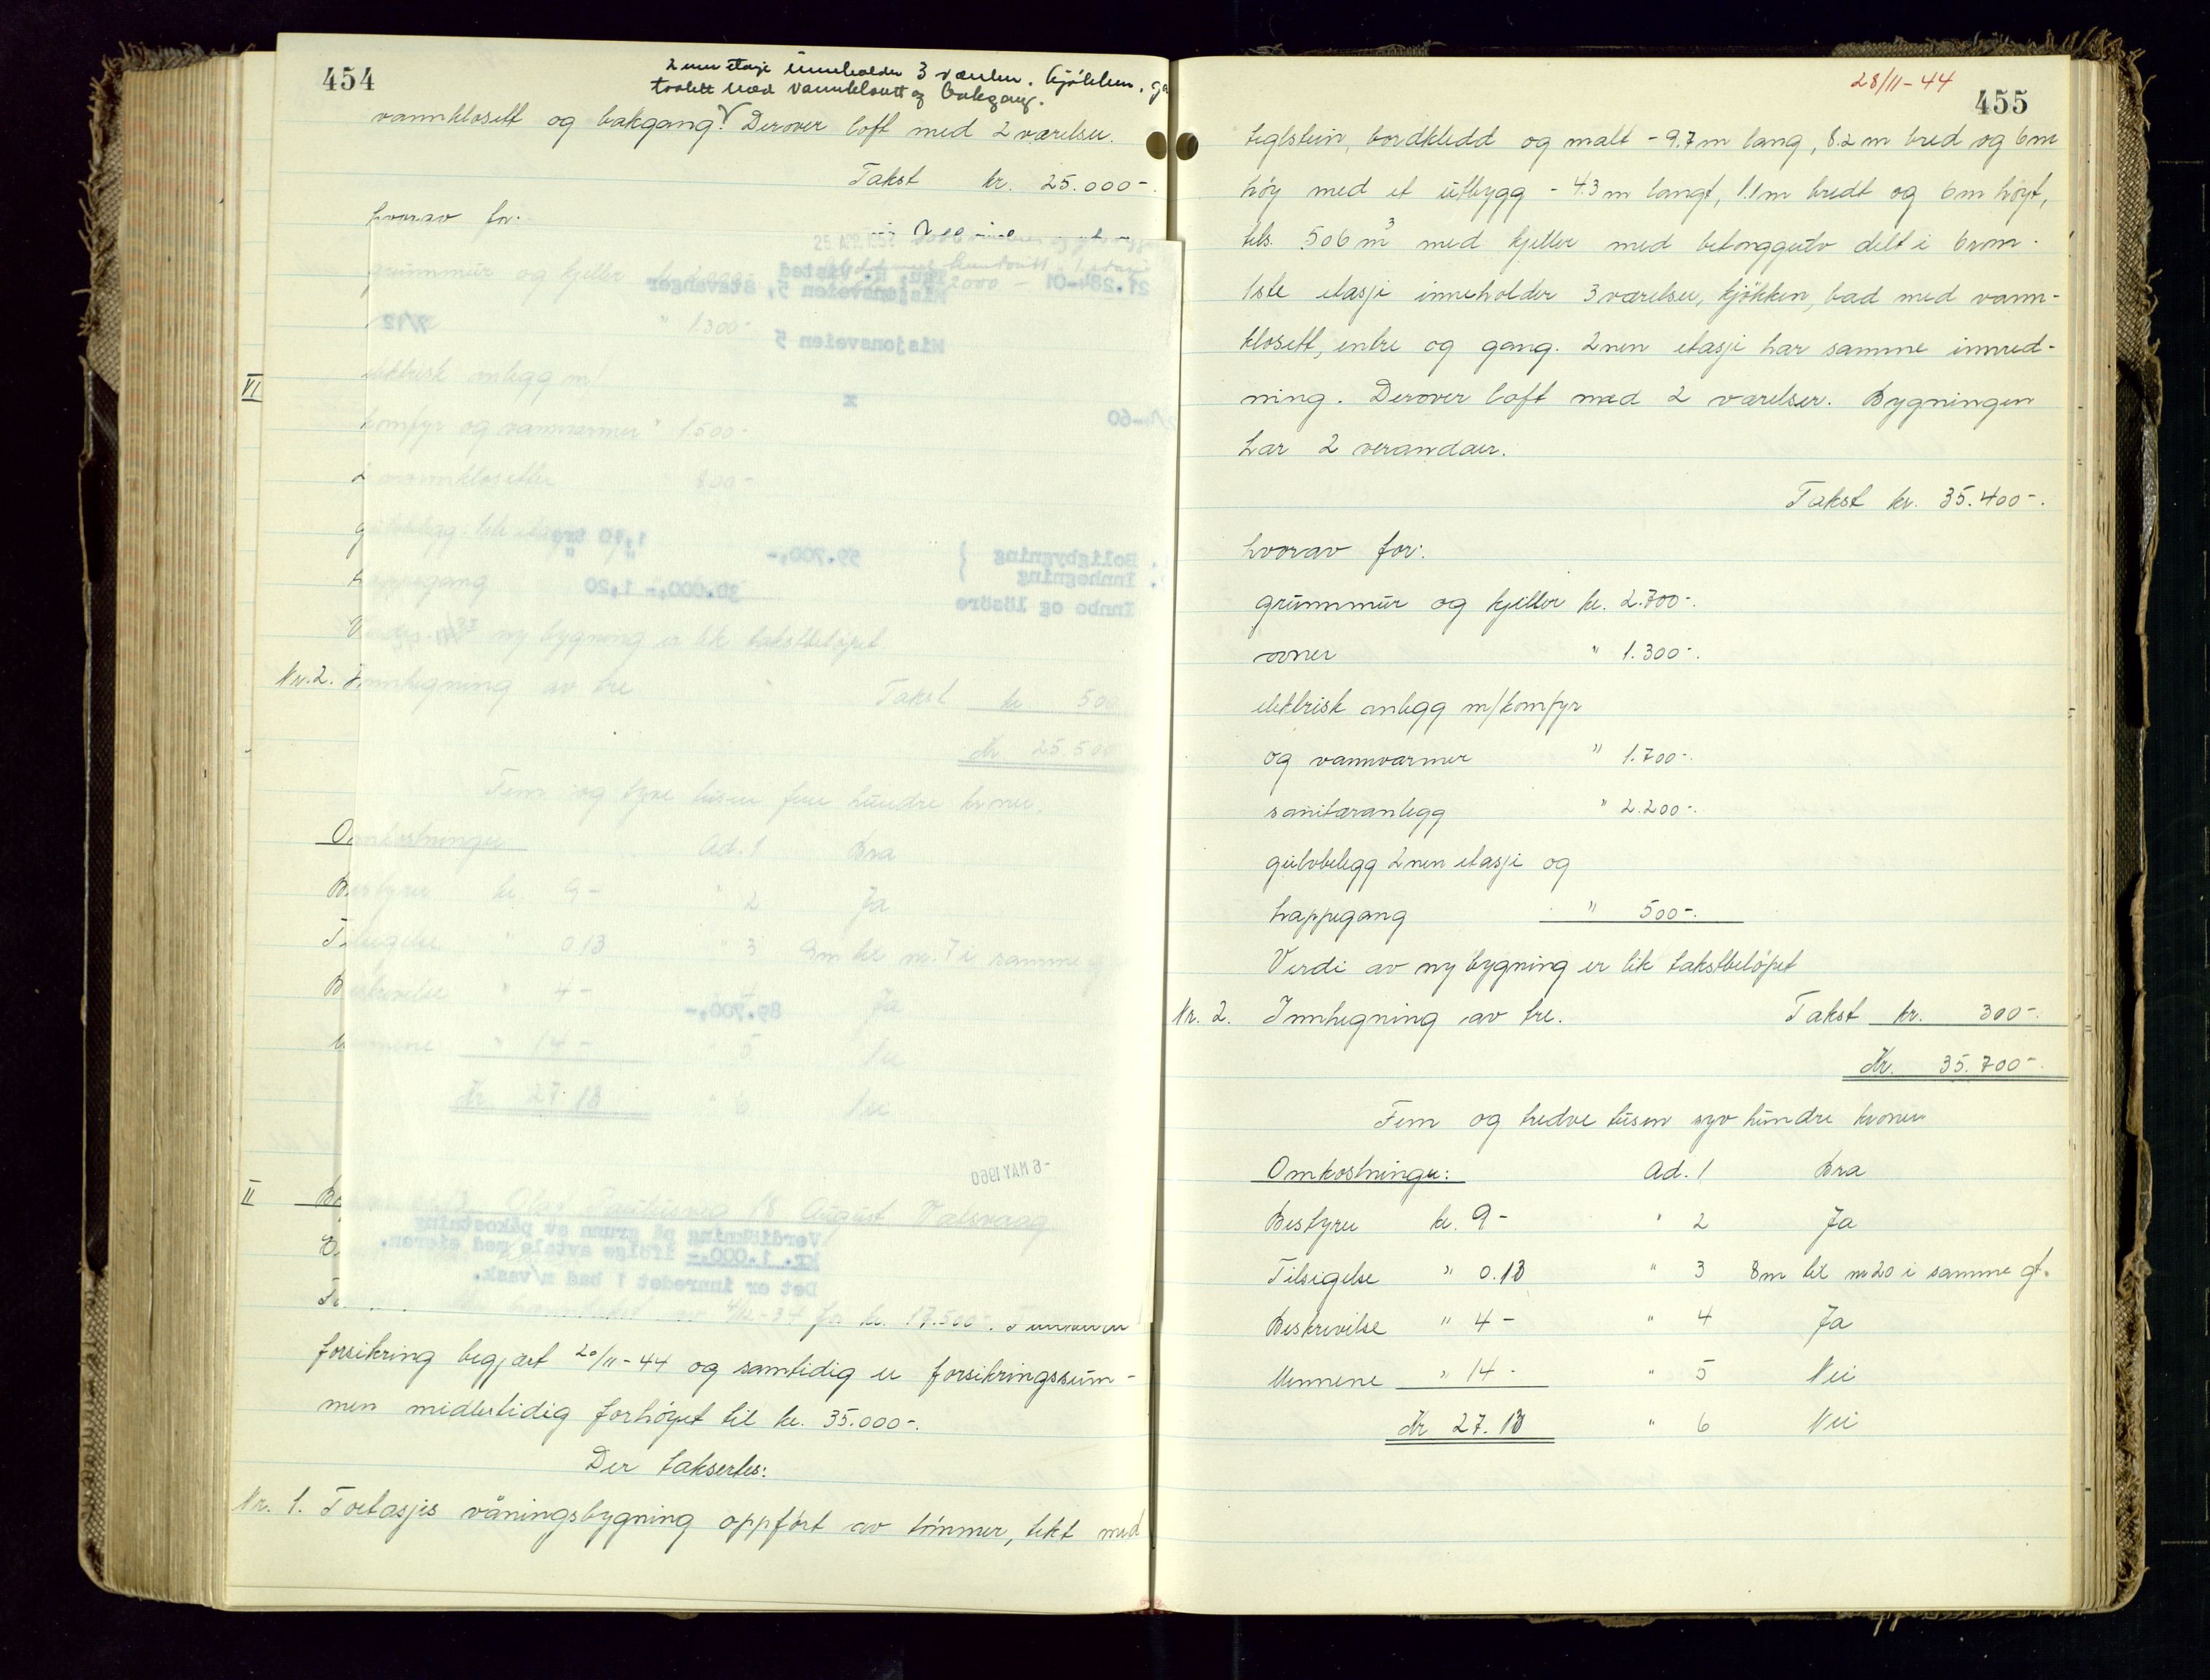 454
2nen etasje inneholder 3 værelser, kjøkken,
toalett med vannklosett og bakgang.
vannklosett og bakgang. Derover loft med 2 værelser.
Takst kr. 25.000-.
hvorav for:
grunnmur og kjeller kr. 2.000-
" 1.300-
VI
elektrisk anlegg m/
komfyr og vannvarmer " 1.500-
2 vannklosetter 800-
gulvbelegg 1ste etasje
trappegang
ny bygning er lik takstbeløpet
Nr. 2. Innhegning av tre Takst kr 500
Kr 25.500
Fem og tyve tusen fem hundre kroner.
Omkostninger Ad. 1 Bra
Bestyrer kr. 9- " 2 Ja
Tilsigelse " 0.13 " 3 9m til nr. 7 i samme
Beskrivelse " 4- Ja
Mennene " 14- " 5 Nei
Kr. 27.13 " 6 Nei
21.284-01
Misjonsveien 5, Stavanger
7/12
Misjonsveien 5
x
Boligbygning 59.700,- 1,10
Innhegning
Innbo og lösöre 30.000,- 1,20
89.700,-
-6 MAY 1960
Verdiökning på grunn av påkostning
kr. 1.000,- ifölge avtale med eieren.
Det er innredet 1 bad m/vask.
II
18 August
4/12-34 for kr. 17.500-.
forsikring begjært 20/11-44 og samtidig er forsikringssum-
men midlertidig forhøyet til kr. 35.000-.
Der takseres:
Nr. 1. Toetasjes våningsbygning oppført av tømmer, tekt med
28/11-44
455
teglstein, bordkledd og malt - 9.7m lang, 8.2m bred og 6m
høy med et utbygg - 4.3m langt, 1.1m bredt og 6m høyt,
tils. 506 m³ med kjeller med betonggulv delt i 6 rom.
1ste etasje inneholder 3 værelser, kjøkken, bad med vann-
klosett, entre og gang. 2nen etasje har samme innred-
ning. Derover loft med 2 værelser. Bygningen
har 2 verandaer.
Takst kr. 35.400-.
hvorav for:
grunnmur og kjeller kr. 2.700-.
ovner " 1.300-.
elektrisk anlegg m/komfyr
og vannvarmer " 1.700-.
sanitæranlegg " 2.200-.
gulvbelegg 2nen etasje og
trappegang " 500-.
Verdi av ny bygning er lik takstbeløpet
Nr. 2. Innhegning av tre. Takst kr. 300-.
Kr. 35.700-.
Fem og tredve tusen syv hundre kroner
Omkostninger: Ad. 1 Bra
Bestyrer kr. 9- " 2 Ja
Tilsigelse " 0.13 " 3 8m til nr 20 i samme gt.
Beskrivelse " 4- " 4 Ja
Mennene " 14- " 5 Nei
Kr 27.13 " 6 Nei